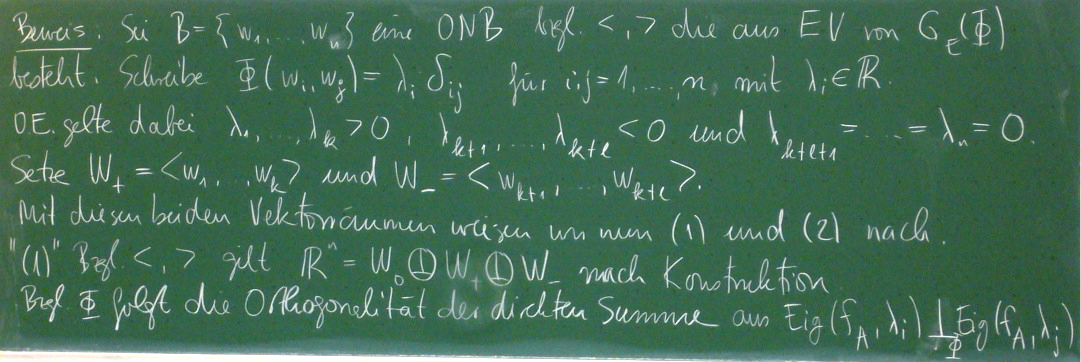 Beweis. Sei B = {w₁, ..., wₙ} eine ONB bzgl. < , > die aus EV von G_E(Φ)
besteht. Schreibe Φ(wᵢ, wⱼ) = λᵢ δᵢⱼ für i,j = 1, ..., n, mit λᵢ ∈ ℝ.
OE. gelte dabei λ₁, ..., λₖ > 0, λₖ₊₁, ..., λₖ₊ₗ < 0 und λₖ₊ₗ₊₁ = ... = λₙ = 0.
Setze W₊ = <w₁, ..., wₖ> und W₋ = <wₖ₊₁, ..., wₖ₊ₗ>.
Mit diesen beiden Vektorräumen weisen wir nun (1) und (2) nach.
"(1)" Bzgl. < , > gilt ℝⁿ = W₀ ⦹ W₊ ⦹ W₋ nach Konstruktion.
Bzgl. Φ folgt die Orthogonalität der direkten Summe aus Eig(f_A, λᵢ) ⊥_Φ Eig(f_A, λⱼ)